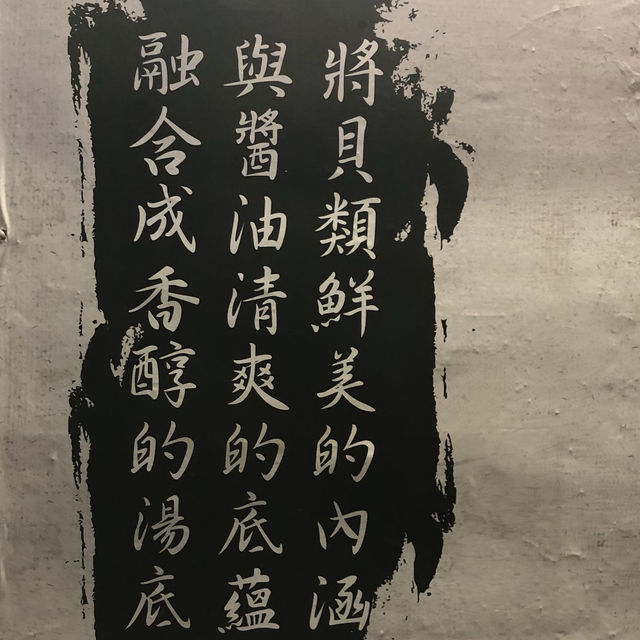 將貝類鮮美的內涵
與醬油清爽的底蘊
融合成香醇的湯底